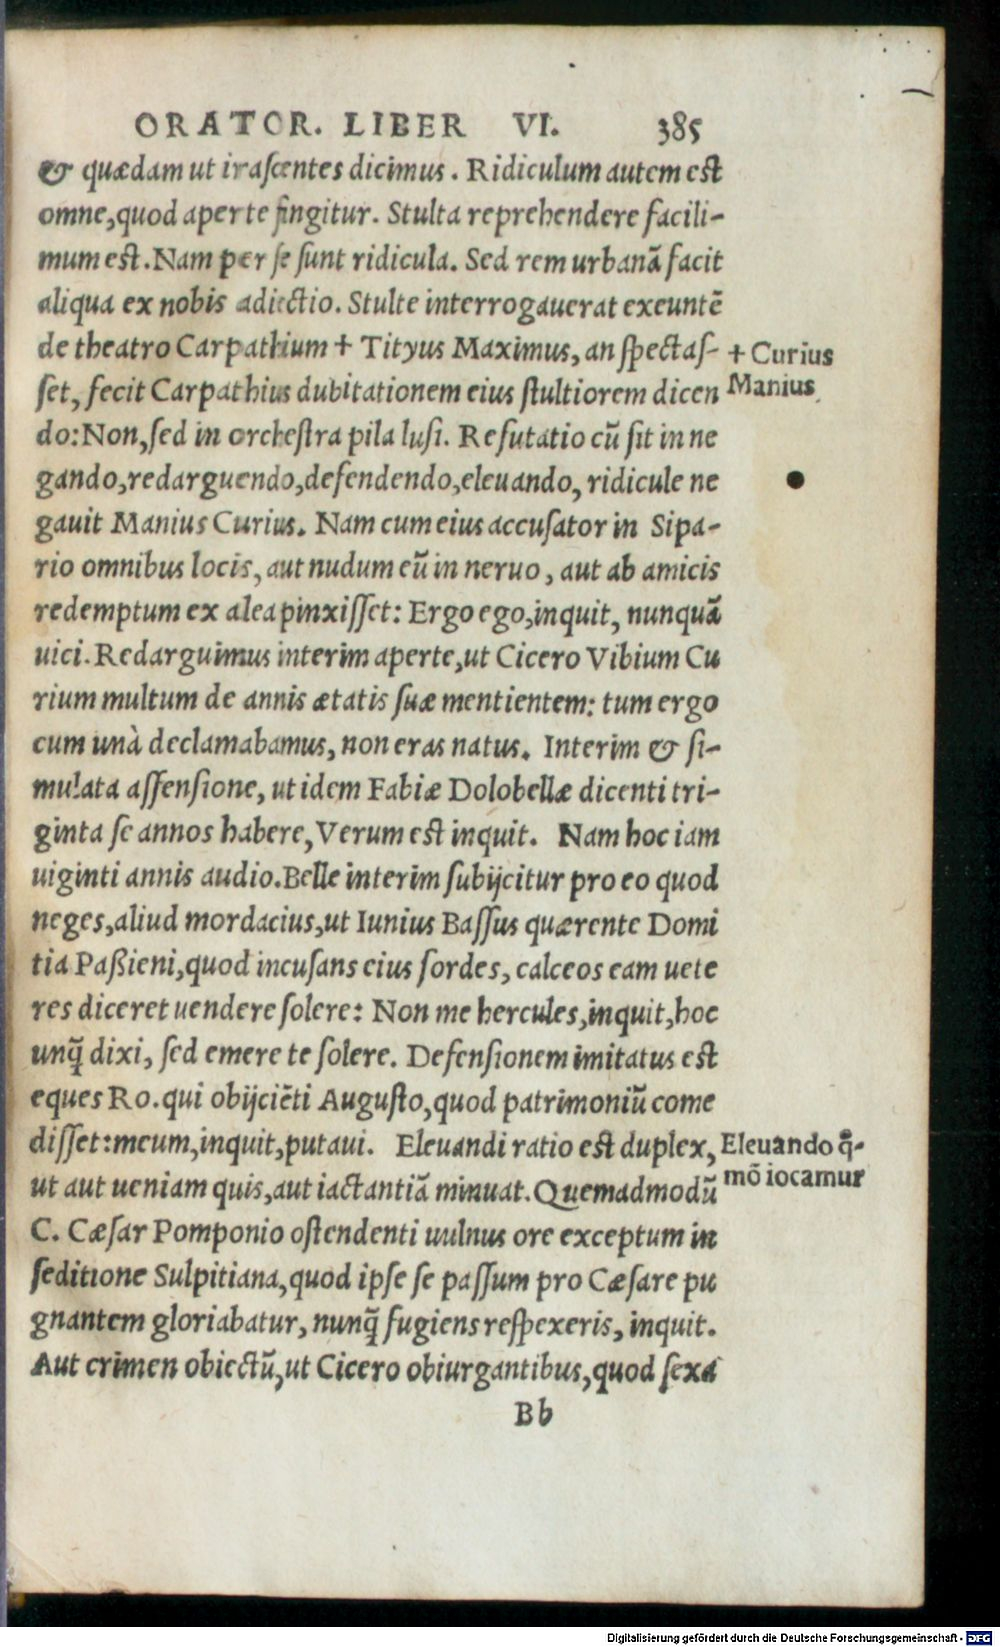 ORATOR. LIBER VI. 385
& quædam ut irascentes dicimus. Ridiculum autem est
omne, quod aperte fingitur. Stulta reprehendere facili-
mum est. Nam per se sunt ridicula. Sed rem urbanā facit
aliqua ex nobis adiectio. Stulte interrogauerat exeuntē
de theatro Carpathium + Tityus Maximus, an spectas-
+ Curius
set, fecit Carpathius dubitationem eius stultiorem dicen
Manius
do: Non, sed in orchestra pila lusi. Refutatio cū sit in ne
gando, redarguendo, defendendo, eleuando, ridicule ne
gauit Manius Curius. Nam cum eius accusator in Sipa-
rio omnibus locis, aut nudum eū in neruo, aut ab amicis
redemptum ex alea pinxisset: Ergo ego, inquit, nunquā
uici. Redarguimus interim aperte, ut Cicero Vibium Cu
rium multum de annis ætatis suæ mentientem: tum ergo
cum unà declamabamus, non eras natus. Interim & si-
mulata assensione, ut idem Fabiæ Dolobellæ dicenti tri-
ginta se annos habere, Verum est inquit. Nam hoc iam
uiginti annis audio. Belle interim subijcitur pro eo quod
neges, aliud mordacius, ut Iunius Bassus quærente Domi
tia Paßieni, quod incusans eius sordes, calceos eam uete
res diceret uendere solere: Non me hercules, inquit, hoc
unq̃ dixi, sed emere te solere. Defensionem imitatus est
eques Ro. qui obijciēti Augusto, quod patrimoniū come
disset: meum, inquit, putaui. Eleuandi ratio est duplex,
Eleuando q̄-
ut aut ueniam quis, aut iactantiā minuat. Quemadmodū
mō iocamur
C. Cæsar Pomponio ostendenti uulnus ore exceptum in
seditione Sulpitiana, quod ipse se passum pro Cæsare pu
gnantem gloriabatur, nunq̃ fugiens respexeris, inquit.
Aut crimen obiectū, ut Cicero obiurgantibus, quod sexa
Bb
Digitalisierung gefördert durch die Deutsche Forschungsgemeinschaft - DFG